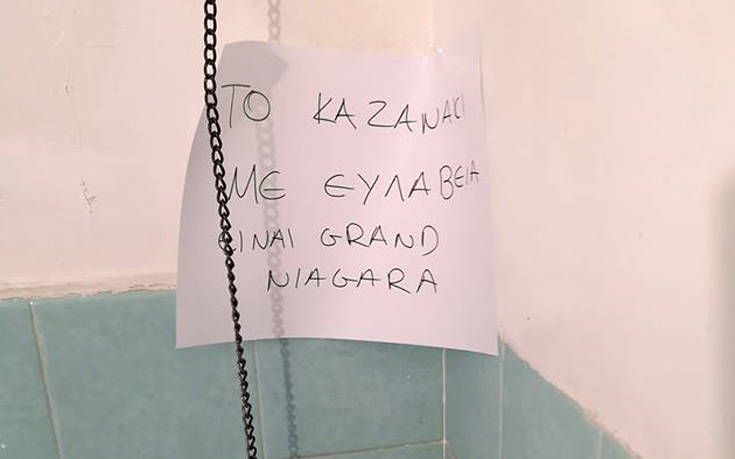 ΤΟ ΚΑΖΑΝΑΚΙ
ΜΕ ΕΥΛΑΒΕΙΑ
ΕΙΝΑΙ GRAND
NIAGARA